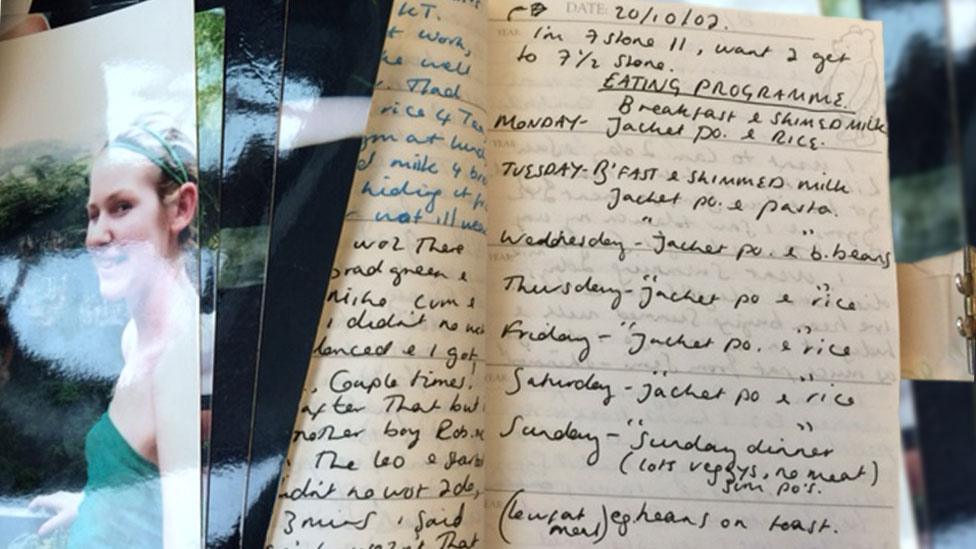 KT.
t work,
he well
. That
rice 4 Tea
gm at lunch
d milk 4 bre
hiding it fr
not ill
woz There
brad green &
Cum &
i didn't no
lenced & I got
., Couple times!
after That but
nother boy Rob.
. The leo &
idn't no wot 2 do,
3 mins i said
That
DATE: 20/10/02.
YEAR
i'm 7 stone 11, want 2 get
to 7½ stone.
EATING PROGRAMME.
Breakfast & SKIMED MILK
MONDAY- Jacket po. & RICE.
TUESDAY- B'FAST & SKIMMED milk
Jacket po. & pasta.
" "
Wednesday - Jacket po. & b.beans
YEAR
" "
Thursday - Jacket po & rice
" "
Friday - Jacket po. & rice
YEAR
" "
Saturday - Jacket po & rice
" "
Sunday - Sunday dinner
(lots veggys, no meat)
sum po's.
YEAR
(lowfat meal) eg beans on toast.